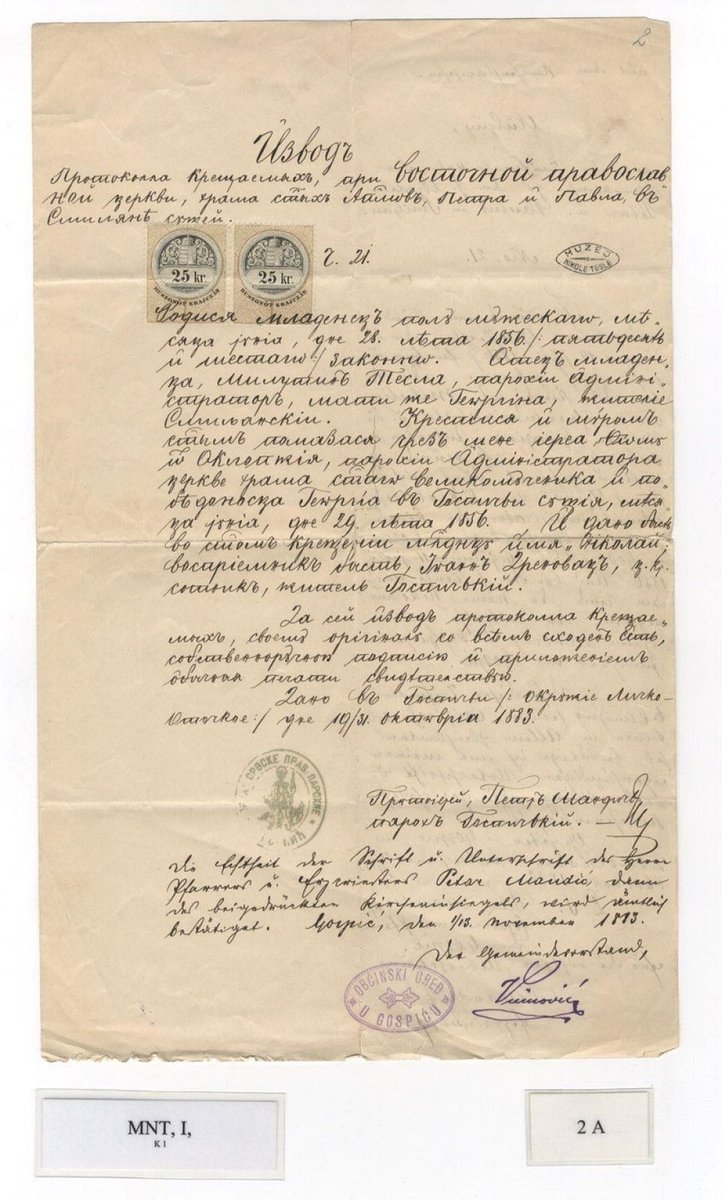 2
Изводъ
Протоколла Крещаемыхъ, при восточной православ
ной церкви, храма стыхъ Апловъ, Петра и Павла, въ
Смилянѣ сущей.
25 kr.
25 kr.
HUSZONÖT KRAJCZÁR
HUSZONÖT KRAJCZÁR
Ч. 21.
MUZEJ
NIKOLE TESLE
Родися младенецъ полъ мужескагω, мѣ„
сяца јунїа, дне 28. лѣта 1856./: пятьдесятъ
и шестагω :/ Законнω. Отецъ младен„
ца, Милутинъ Тесла, парохїи Админи„
страторъ, мати же Георгина, жителїе
Смилянскїи. Крестися и мνромъ
стымъ помазася чрезъ мене іереа
Оклопжїя, парохїи Администратора
церкве храма стагω великомученика и по„
бѣдоносца Георгїа въ Госпичьи сущїя, мѣся„
ца јунїа, дне 29. лѣта 1856. И дано
во стомъ крещенїи млднцу имя „Николай;
воспрїемникъ бысть, Іоаннъ Дреновацъ, ц. кр.
сотникъ, житель Госпичьскїй.
За сей изводъ протоколла Крещае„
мыхъ, своему оригиналу со всѣмъ сходенъ есть,
собственноручною подписїю и приложенїемъ
обычная печати свидѣтелствую.
Дано въ Госпичьи /: Окружїе Личко-
Оточкое:/ дне 19/31. октомврїа 1883.
СРПСКЕ ПРАВ. ПАРОХИЕ
Протоіерей, Петръ Мандичъ,
парохъ Госпичьскїй.
Die Echtheit der Schrift u. Unterschrift des Herrn
Pfarrers u. Erzpriesters Petar Mandić dann
des beigedrückten Kircheninsiegels, wird ämtlich
betätiget. Gospić, den 1/13. November 1883.
Der Gemeindevorstand,
OBĆINSKI URED
U GOSPIĆU
Vuinović
MNT, I,
K 1
2 A